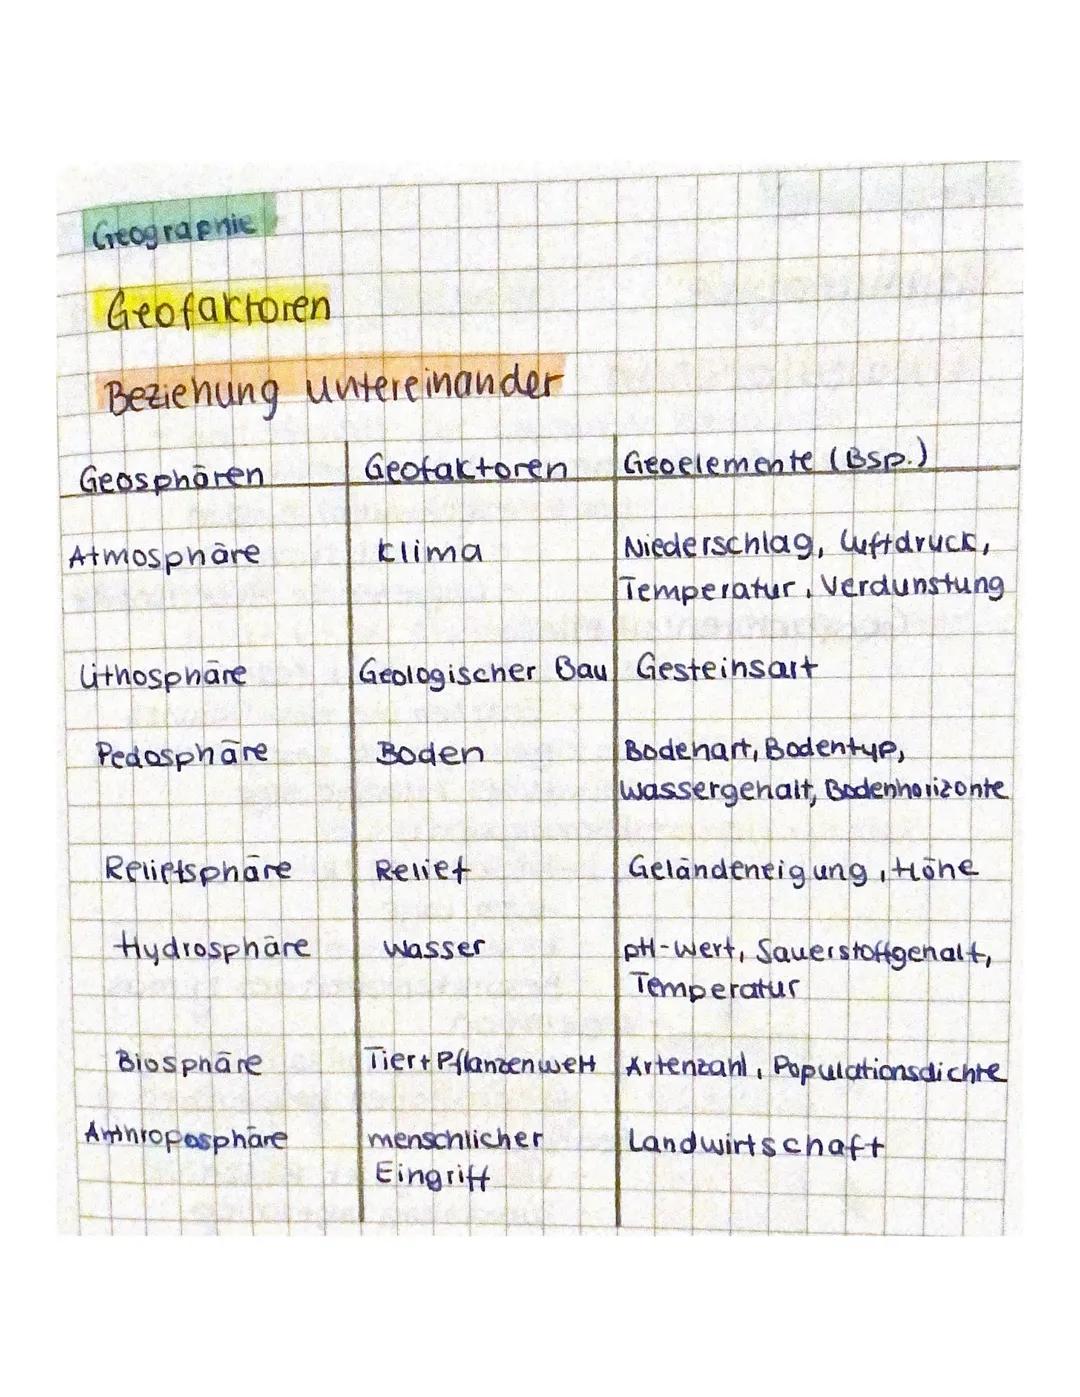 Geographie
Geofaktoren
Beziehung untereinander
Geosphären Geofaktoren Geoelemente (Bsp.)
Atmosphäre Klima Niederschlag, Luftdruck,
Temperatur, Verdunstung
Lithosphäre Geologischer Bau Gesteinsart
Pedosphäre Boden Bodenart, Bodentyp,
Wassergehalt, Bodenhorizonte
Reliefsphäre Relief Geländeneigung, Höhe
Hydrosphäre Wasser pH-Wert, Sauerstoffgehalt,
Temperatur
Biosphäre Tier+Pflanzenwelt Artenzahl, Populationsdichte
Anthroposphäre menschlicher Landwirtschaft
Eingriff